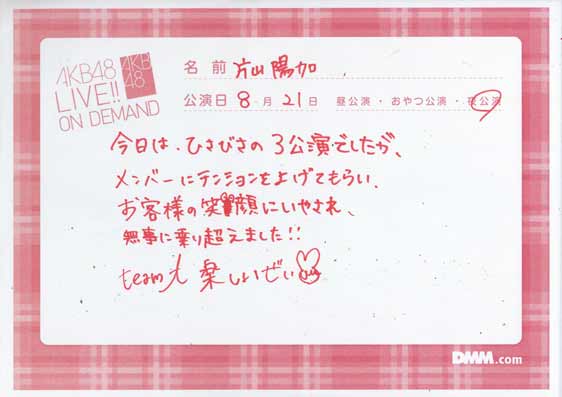 AKB48
LIVE!!
ON DEMAND
AKB
48
名前 片山陽加
公演日 8月21日 昼公演・おやつ公演・夜公演
今日は、ひさびさの3公演でしたが、
メンバーにテンションを上げてもらい、
お客様の笑顔にいやされ、
無事に乗り超えました!!
team 楽しいぜぃ
DMM.com